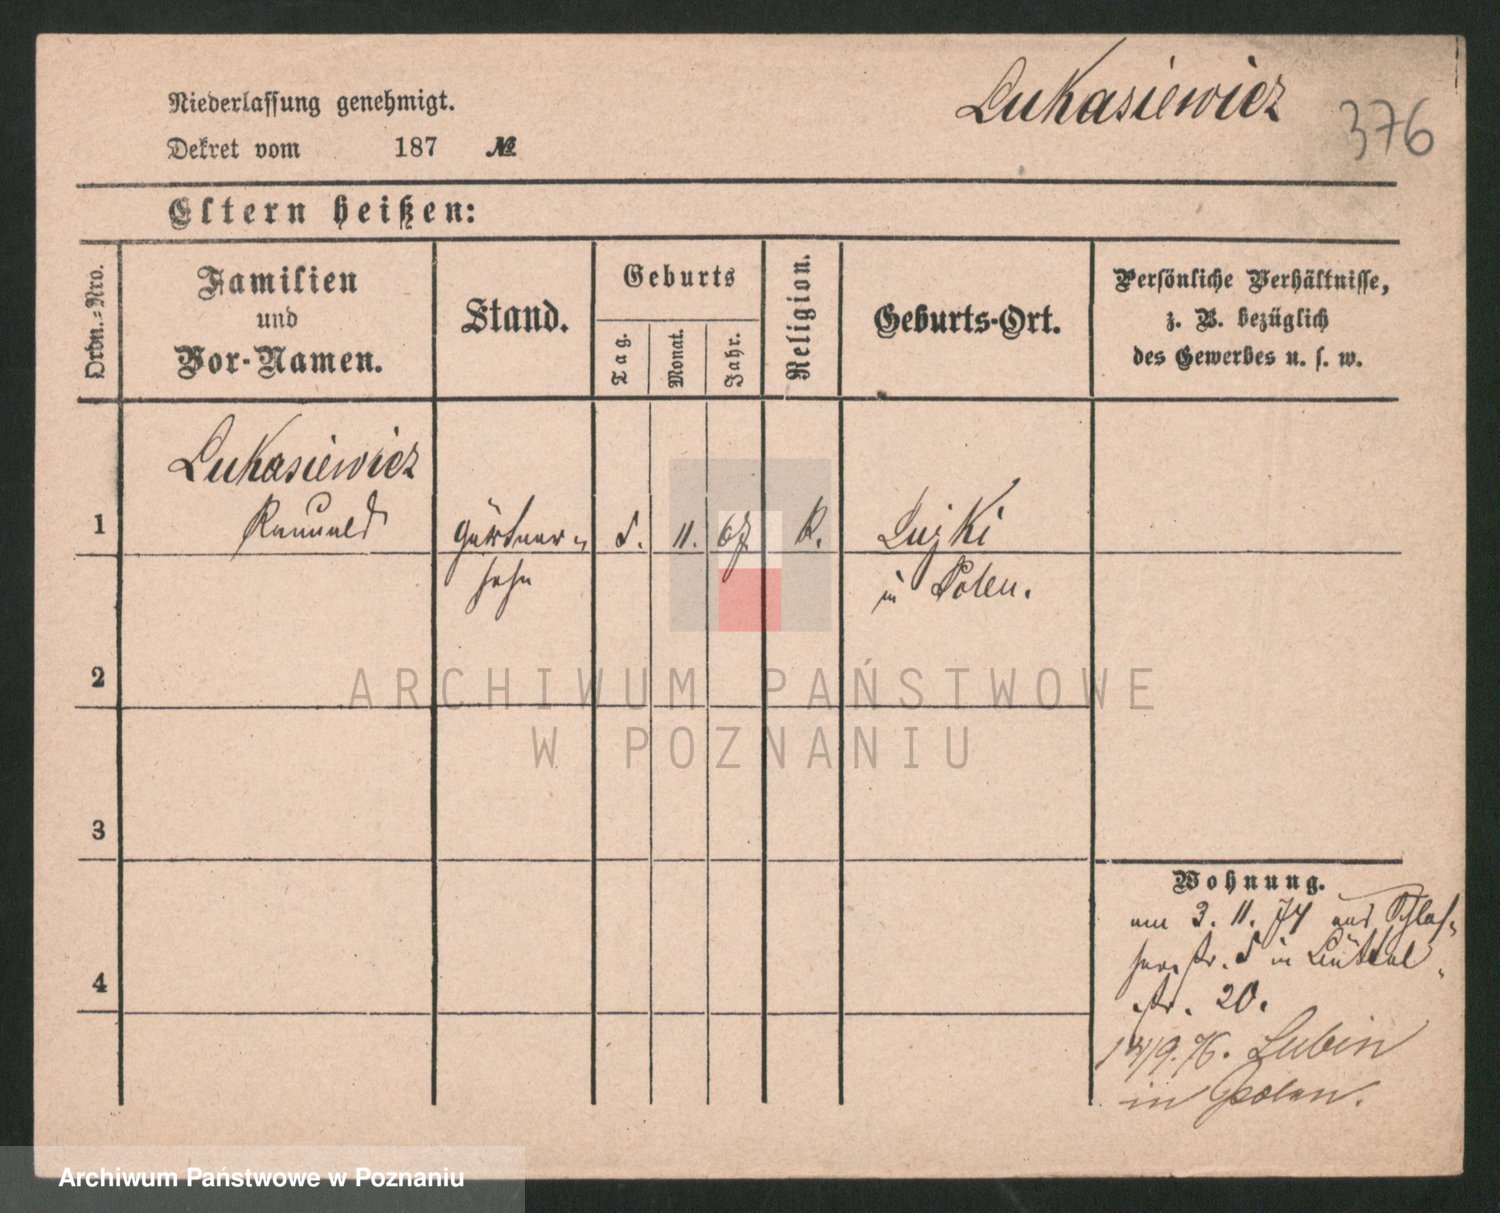 Niederlassung genehmigt.
Dekret vom 187 №
Lukasiewicz
376
Eltern heißen:
Ordn.-Nro.
Familien
und
Vor-Namen.
Stand.
Geburts
Tag.
Monat.
Jahr.
Religion.
Geburts-Ort.
Persönliche Verhältnisse,
z. B. bezüglich
des Gewerbes u. s. w.
Lukasiewicz
1 Romuald Gärtner- 5. 11. 67 K.
sohn in Polen.
2
ARCHIWUM PAŃSTWOWE
W POZNANIU
3
Wohnung.
am 3. 11. 74 aus Schlos-
serstr. 5 in
4 str. 20.
9. 76. Lubin
in Polen.
Archiwum Państwowe w Poznaniu